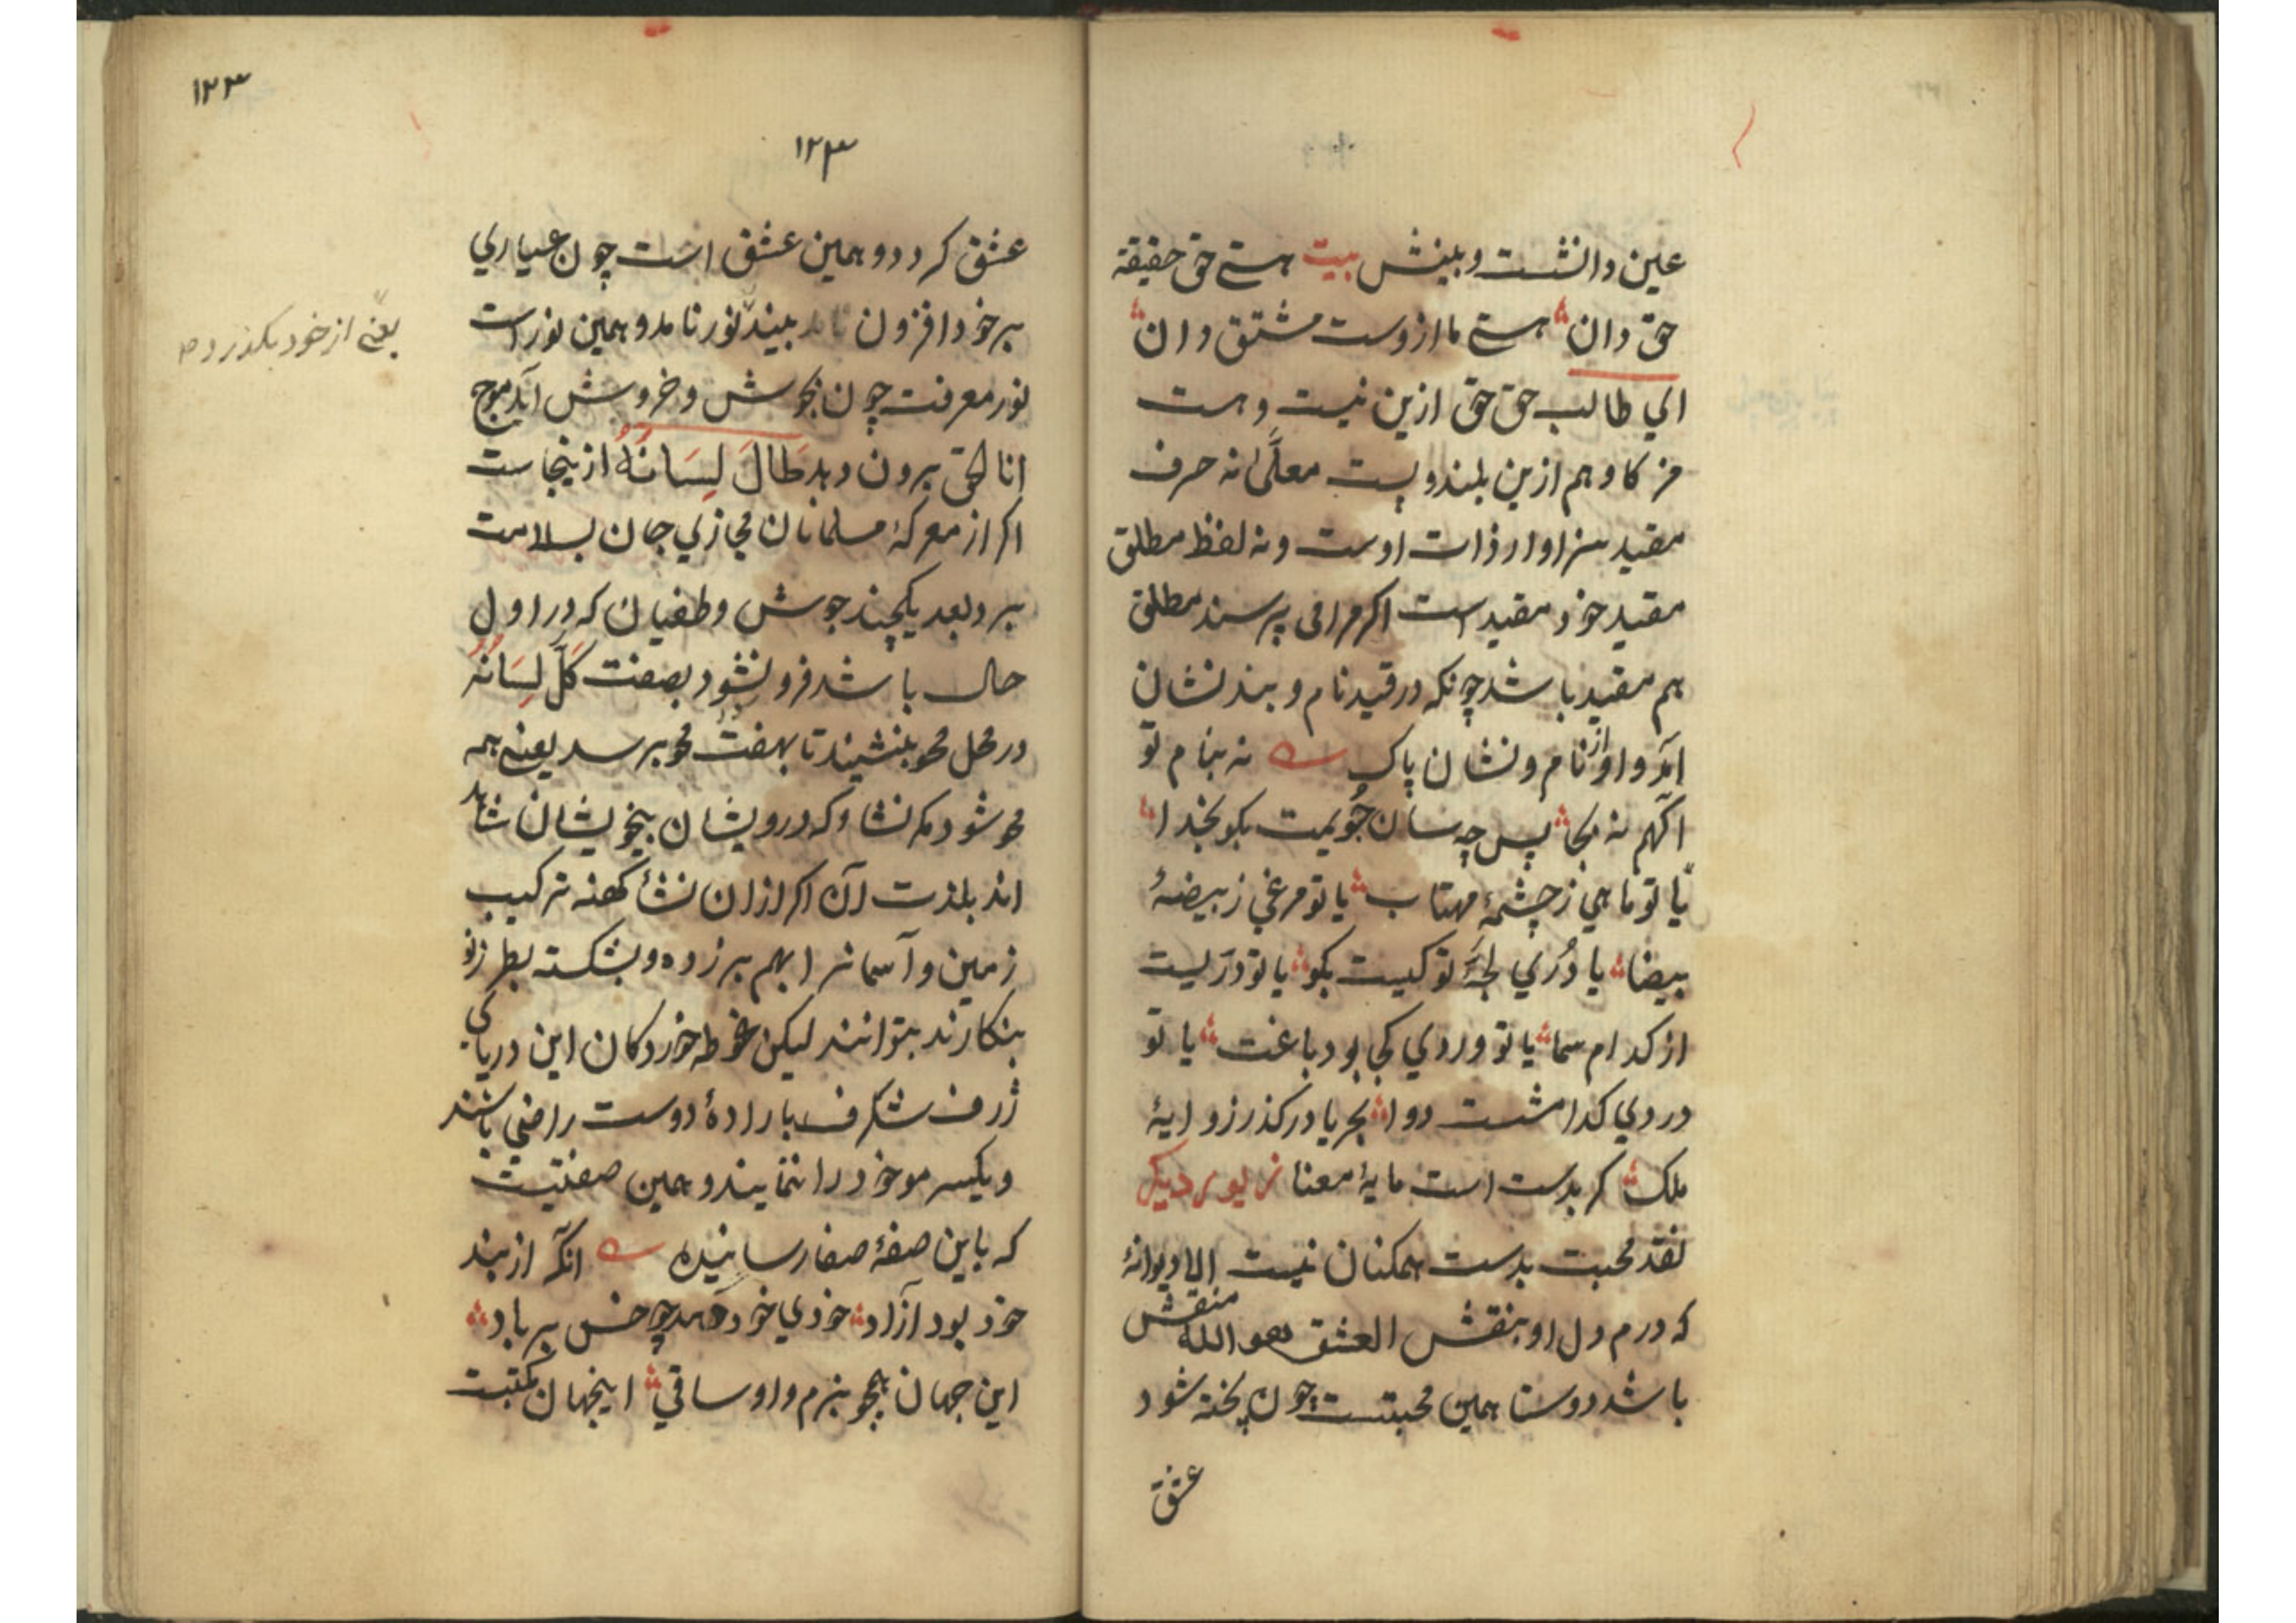 عین دانشت و بینش بیت هستے حق حقیقة
حق دان هستے ما ازوست مشتق دان
اي طالب حق حق ازین نیست و هست
مز کا وهم ازین بلند و پست معلّٰی نه حرف
مقید سزاوار ذات اوست و نه لفظ مطلق
مقید خود مقید است اکر مرا می پرسند مطلق
هم مقید باشد چونکه در قید نام و بند نشان
آمد و او از نام و نشان پاک نه بنام تو
اکهم نه بجا پس چه سان جویمت بکو بخدا
یا تو ماهي ز چشمهٔ مهتاب یا تو مرغي ز بیضهٔ
بیضا یا دُرّي لجّهٔ تو کیست بکو یا تو درّیست
از کدام سما یا تو وردي کجا بود باغت یا تو
دردي کدامست دوا بحریا در کذر ز و ایهٔ
ملک کر بدست است مایهٔ معنا زیور دیکر
نقد محبت بدست همکنان نیست الا دیوانهٔ
که درم دل او بنقش العشق هو الله منقش
باشد دوستا همین محبتست چون پخته شود
عشق
۱۲۳
۱۲۳
عشق کردد و همین عشق است چون عیاري
بر خود افزون بیند نور نامد و همین نور است
نور معرفت چون بجوش و خروش آید موج
انا الحق برون دهد طَالَ لِسَانُهُ ازینجاست
اکر از معرکهٔ مسلمانان مجازي جان بسلامت
برد بعد یکچند جوش و طغیان که در اول
حال باشد فرو نشود بصفت کَلَّ لِسَانُهُ
در محل محو بنشیند تا بهفت محو برسد یعنے همه
محو شود مکر نشاء که درویشان بیخویشان شاهد
اند بلذت آن اکر ازان نشأ کهنه ترکیب
زمین و آسمانرا بهم بر زده و بشکسته بطرز نو
بنکارند بتوانند لیکن غوطه خوردکان این دریاي
ژرف شکرف با ارادهٔ دوست راضي باشند
و یکسر مو خود را ننمایند و همین صفتیست
که باین صفهٔ صفا رسانیده انکه از بند
خود بود آزاد خودي خود دهد چو خس بر باد
این جهان همچو بزم و او ساقي اینجهان مکتبست
یعنے از خود بکذرد